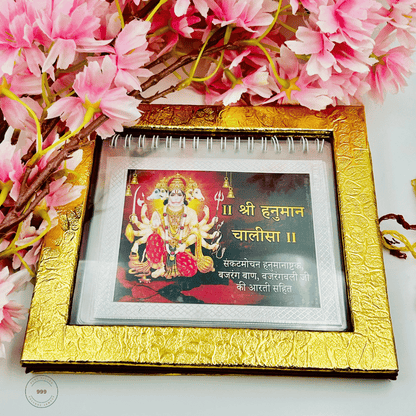 ॥ श्री हनुमान
चालीसा ॥
संकटमोचन हनुमानाष्टक
बजरंग बाण, बजरंगबली जी
की आरती सहित
999